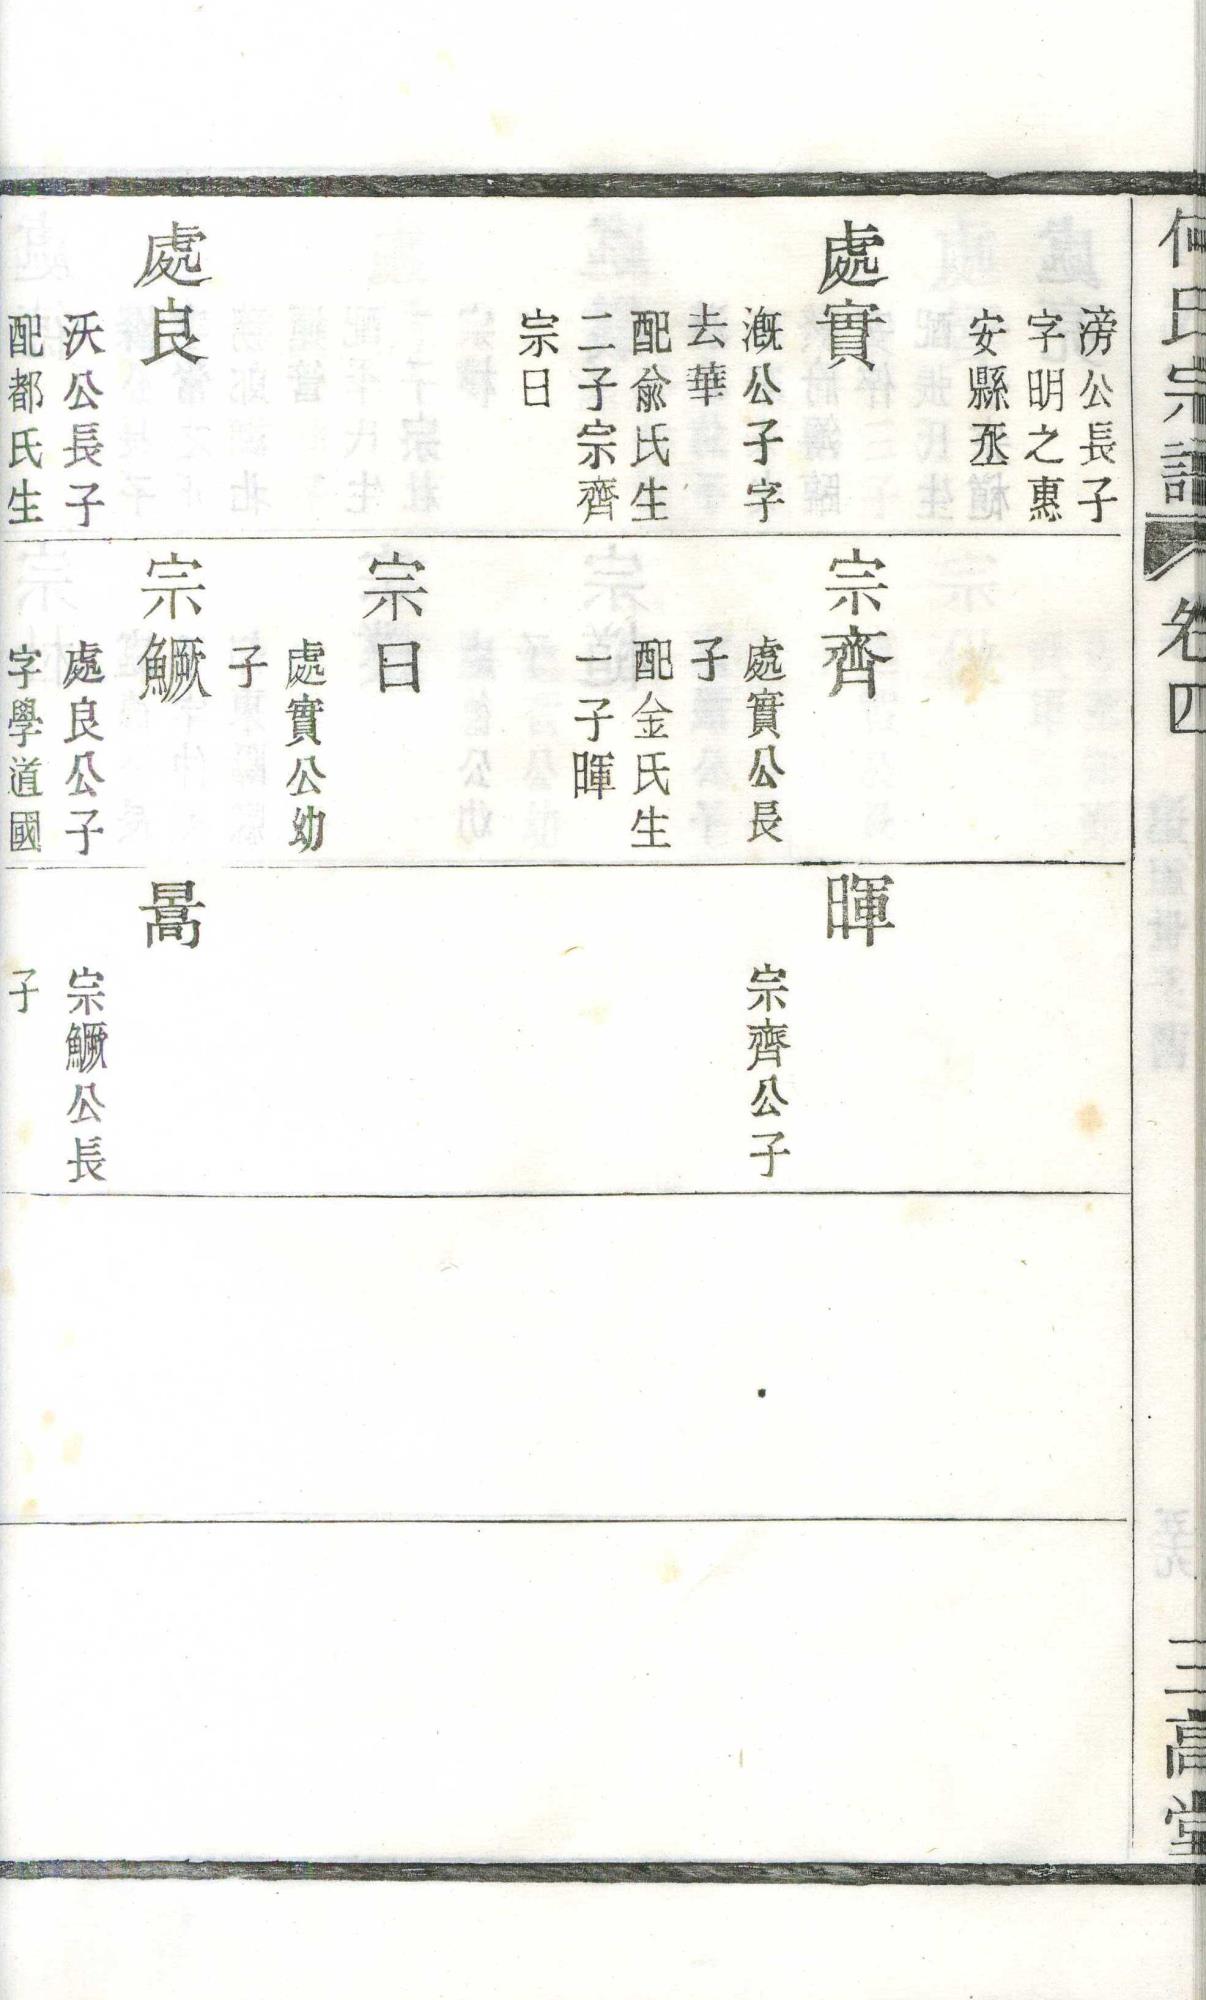 何氏宗譜
卷四
三高堂
滂公長子
字明之惠
安縣丞
處實
漑公子字
去華
配兪氏生
二子宗齊
宗日
處良
沃公長子
配都氏生
宗齊
處實公長
子
配金氏生
一子暉
宗日
處實公幼
子
宗鱖
處良公子
字學道國
暉
宗齊公子
暠
宗鱖公長
子